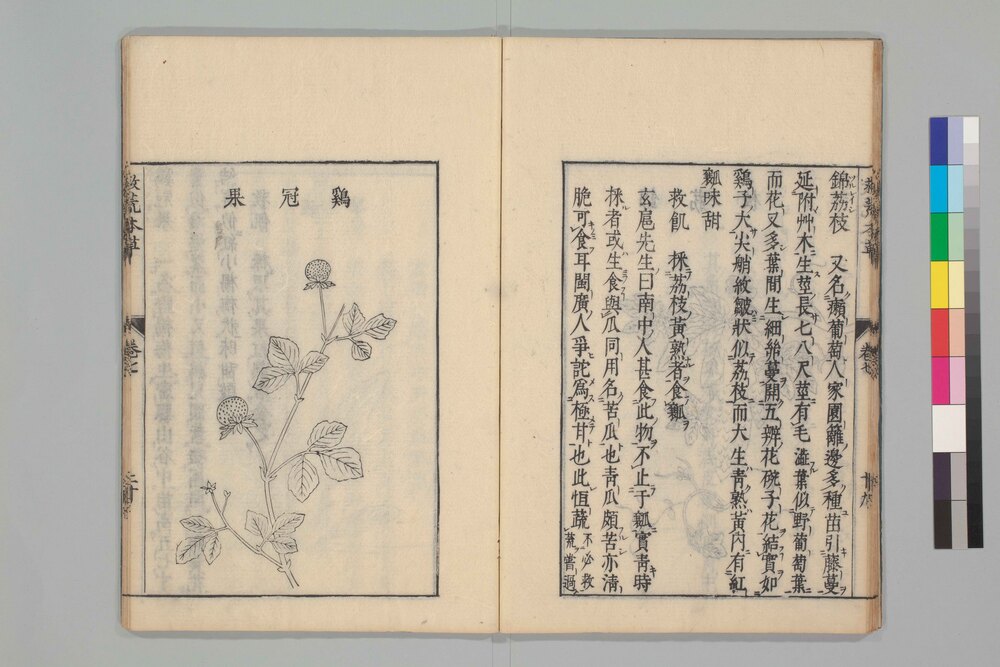 錦荔枝　又名癩葡萄人家園籬邊多種苗引藤蔓
延附艸木生莖長七八尺莖有毛澁葉似野葡萄葉
而花又多葉間生細絲蔓開五瓣花碗子花結實如
鷄子大尖艄紋皺狀似荔枝而大生青熟黃內有紅
瓤味甜
救飢　採荔枝黃熟者食瓤
玄扈先生曰南中人甚食此物不止于瓤實青時
採者或生食與瓜同用名苦瓜也青瓜頗苦亦清
脆可食耳閩廣人爭詫爲極甘也此恆蔬不必救
荒曾過
卷七
鷄冠果
卷七